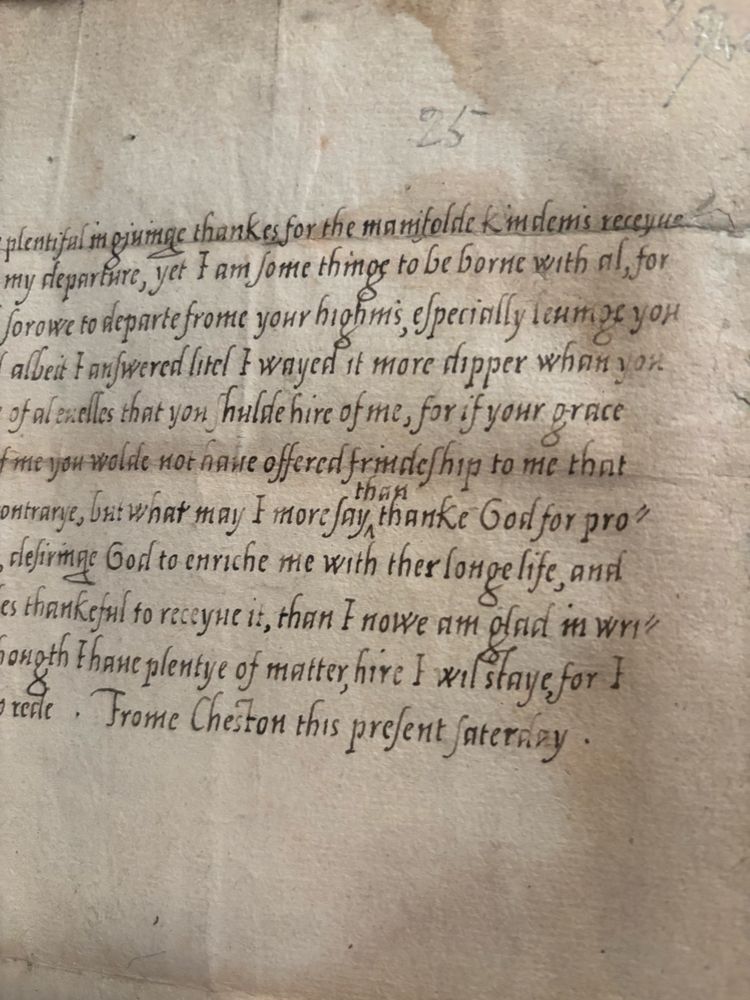 25
plentiful in giuinge thankes for the manifolde kindenis receyue
my departure, yet I am some thinge to be borne with al, for
sorowe to departe frome your highnis, especially leuinge you
albeit I answered litel I wayed it more dipper whan you
of al euelles that you shulde hire of me, for if your grace
of me you wolde not haue offered frindeship to me that
contrarye, but what may I more say than thanke God for pro〃
, desiringe God to enriche me with ther longe life, and
es thankeful to receyue it, than I nowe am glad in wri〃
hougth I haue plentye of matter, hire I wil staye, for I
rede . Frome Cheston this present saterday .